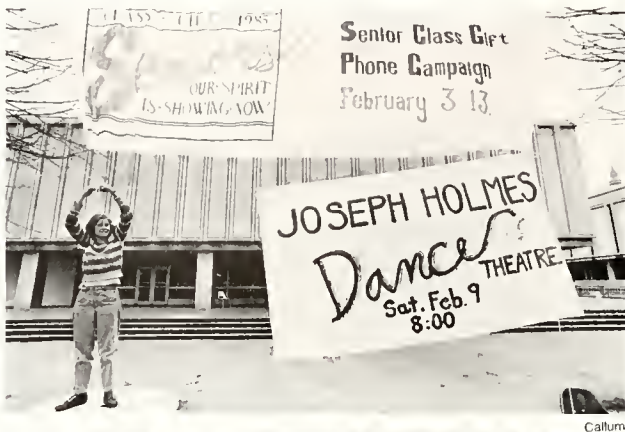 CLASS OF 1985
OUR·SPIRIT
IS·SHOWING·NOW
Senior Class Gift
Phone Campaign
February 3 13
JOSEPH HOLMES
Dance
THEATRE
Sat. Feb. 9
8:00
Callum